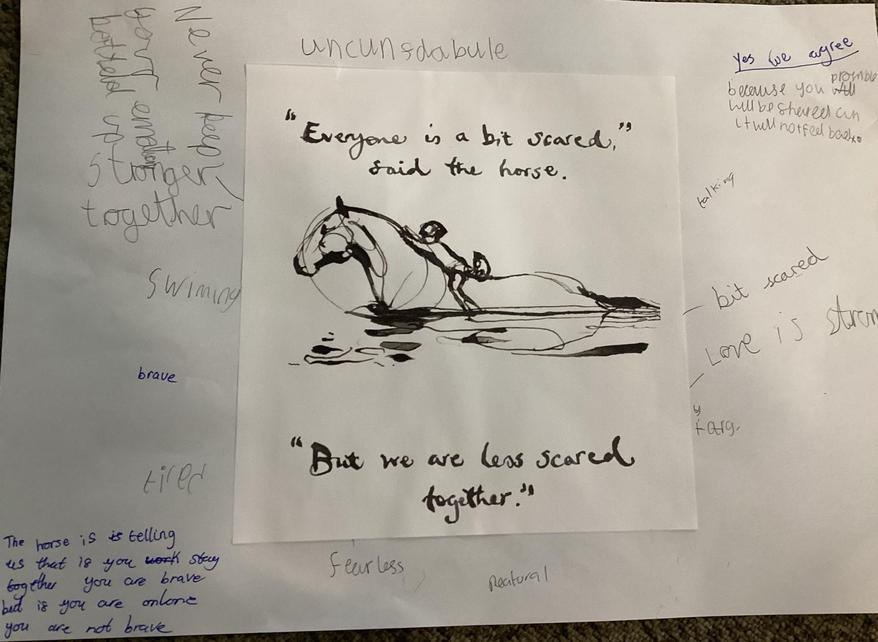 uncunsdabule
Never keep
your emotions
bottled up
Stronger
together
Swiming
brave
tired
The horse is is telling
us that is you work stay
together you are brave
but is you are onlone
you are not brave
"Everyone is a bit scared,"
said the horse.
"But we are less scared
together."
fearless
Yes we agree
problem
because you will
will be shared an
it will not feel bad
talking
bit scared
Love is stron